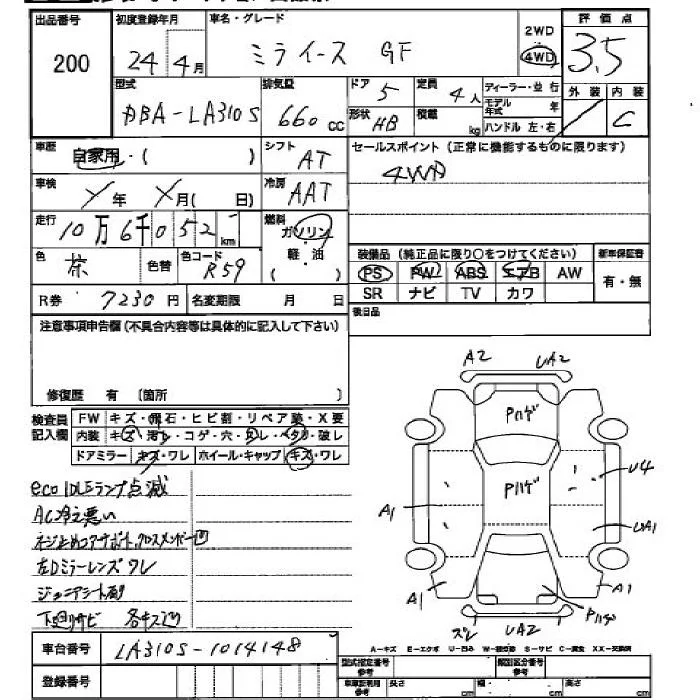 出品番号 初度登録年月 車名・グレード 2WD 評価点
200 24年 4月 ミライース GF 4WD 3.5
型式 排気量 ドア 定員 ディーラー・並行 外装 内装
DBA-LA310S 660cc 5 4人 モデル年式 年 C
形状 HB 積載 kg ハンドル 左・右
車歴 自家用・( ) シフト AT セールスポイント (正常に機能するものに限ります)
車検 年 月( 日) 冷房 AAT 4WD
走行 10万6千052km 燃料 ガソリン
色 茶 色替 色コード R59 軽・油 ( ) 装備品 (純正品に限り○をつけてください) 新車保証書
PS PW ABS エアB AW 有・無
R券 7230円 名変期限 月 日 SR ナビ TV カワ
注意事項申告欄 (不具合内容等は具体的に記入して下さい) 後日品
修復歴 有 〔箇所 〕
検査員記入欄 FW キズ・飛石・ヒビ割・リペア跡・X要
内装 キズ・汚レ・コゲ・穴・スレ・ヘタリ・破レ
ドアミラー キズ・ワレ ホイール・キャップ キズ・ワレ
A2 UA2
Pハゲ
Pハゲ U4
A1 UA1
A1 A1
Pハゲ
ズレ UA2
eco IDLEランプ点滅
AC冷え悪い
ネジ止めコアサポート,クロスメンバー凹
左Dミラーレンズワレ
下回りサビ 各キズ凹
A-キズ E-エクボ U-凹み W-補修跡 S-サビ C-腐食 XX-交換済
車台番号 LA310S-1014148
登録番号
型式指定番号 参考 類別区分番号 参考
車庫証明用 参考 長さ cm 幅 cm 高さ cm